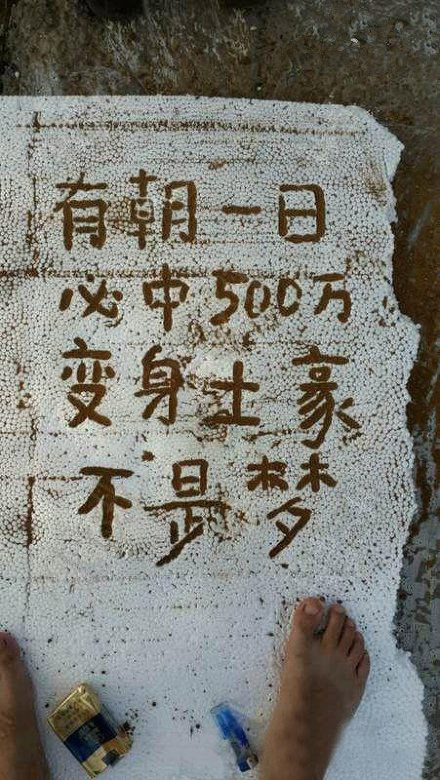 有朝一日
必中500万
变身土豪
不是梦